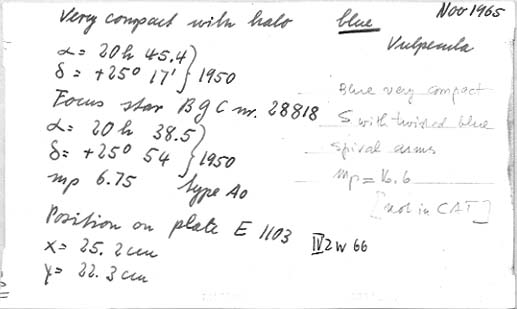 Nov 1965
Very compact with halo blue
Vulpecula
α = 20h 45.4
δ = +25° 17' } 1950
Focus star BGC nr. 28818
α = 20h 38.5
δ = +25° 54 } 1950
mp 6.75 type A0
Position on plate E 1103
x = 25.2 cm
y = 22.3 cm
Blue very compact
S with twisted blue
spiral arms
mp = 16.6
[not in CAT]
IV ZW 66